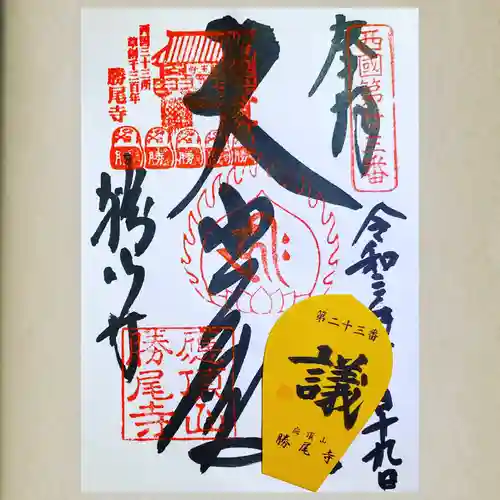 奉拝
西國第廿三番
令和三
十九日
大悲殿
西国三十三所
草創千三百年
勝尾寺
勝
勝
勝
勝
勝
勝尾寺
應頂山
勝尾寺
第二十三番
議
応頂山
勝尾寺